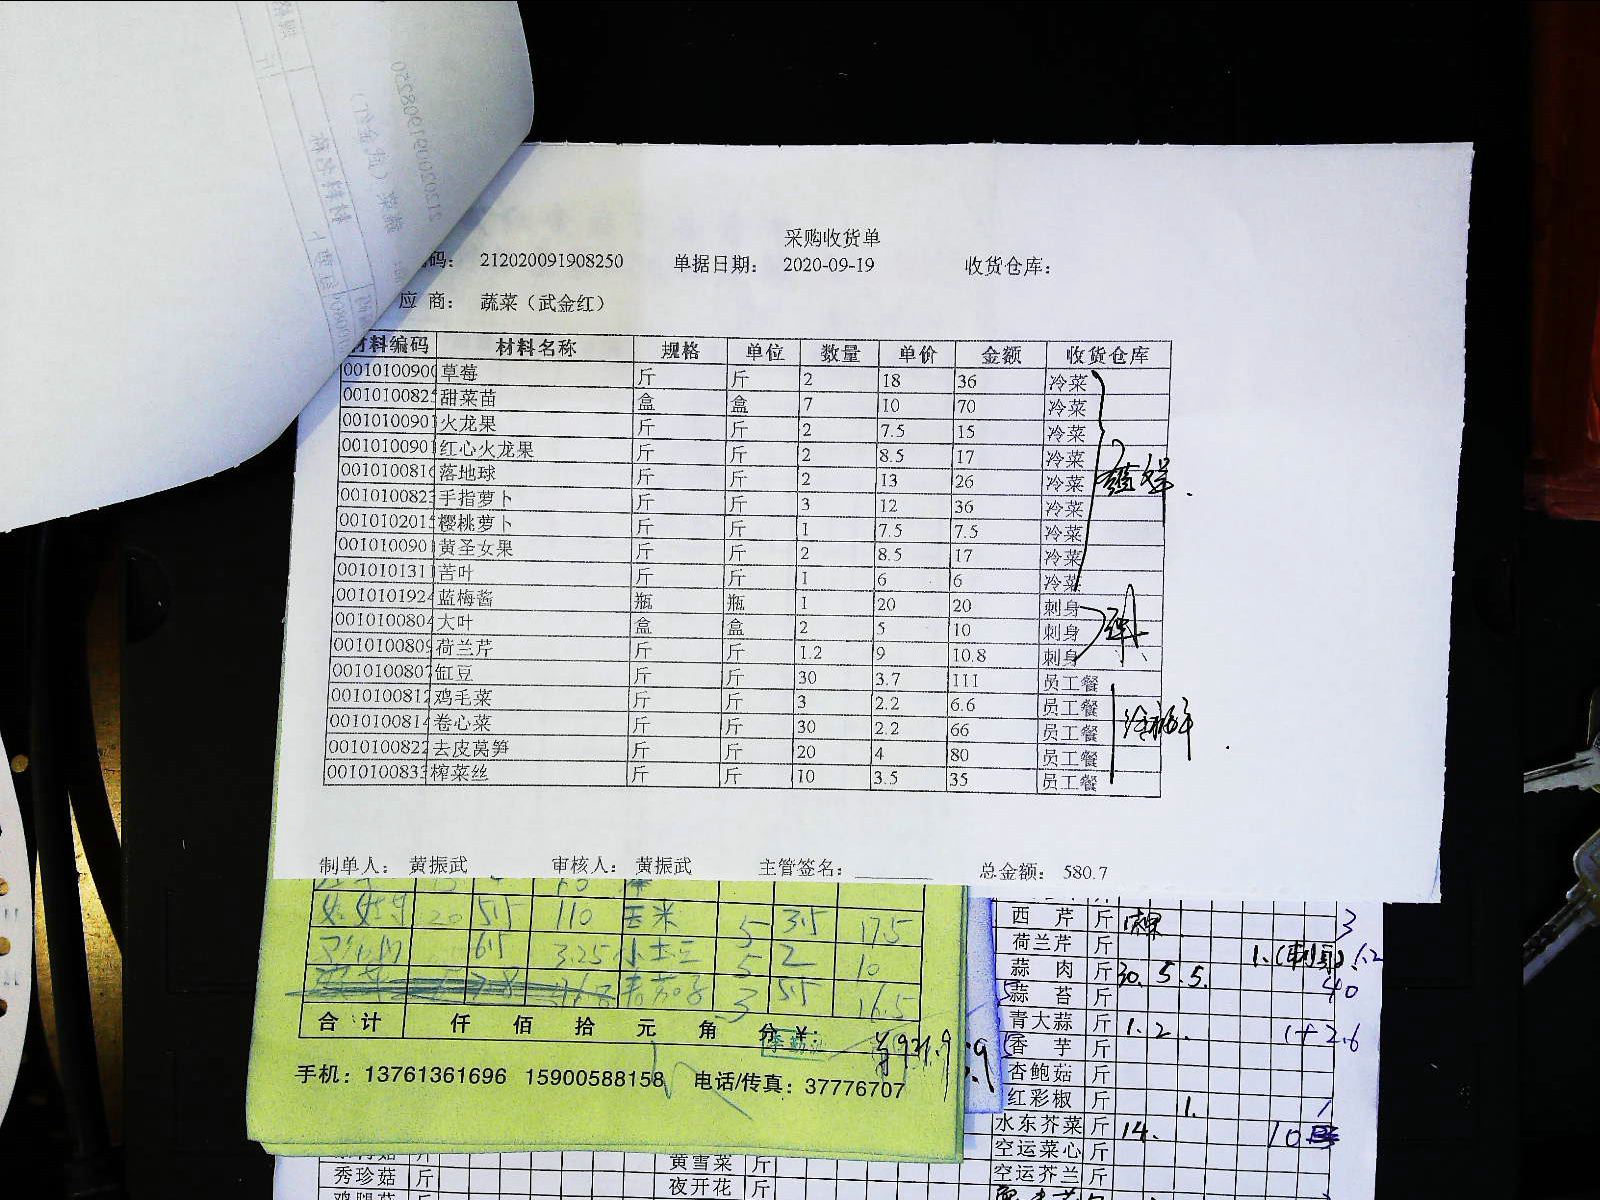 采购收货单
码： 212020091908250 单据日期： 2020-09-19 收货仓库：
应 商： 蔬菜（武金红）
材料编码 材料名称 规格 单位 数量 单价 金额 收货仓库
001010090 草莓 斤 斤 2 18 36 冷菜
001010082 甜菜苗 盒 盒 7 10 70 冷菜
001010090 火龙果 斤 斤 2 7.5 15 冷菜
001010090 红心火龙果 斤 斤 2 8.5 17 冷菜
001010081 落地球 斤 斤 2 13 26 冷菜
001010082 手指萝卜 斤 斤 3 12 36 冷菜
001010201 樱桃萝卜 斤 斤 1 7.5 7.5 冷菜
001010090 黄圣女果 斤 斤 2 8.5 17 冷菜
001010131 苦叶 斤 斤 1 6 6 冷菜
001010192 蓝梅酱 瓶 瓶 1 20 20 刺身
001010080 大叶 盒 盒 2 5 10 刺身
001010080 荷兰芹 斤 斤 1.2 9 10.8 刺身
001010080 缸豆 斤 斤 30 3.7 111 员工餐
001010081 鸡毛菜 斤 斤 3 2.2 6.6 员工餐
001010081 卷心菜 斤 斤 30 2.2 66 员工餐
001010082 去皮莴笋 斤 斤 20 4 80 员工餐
001010083 榨菜丝 斤 斤 10 3.5 35 员工餐
制单人： 黄振武 审核人： 黄振武 主管签名： 总金额： 580.7
20 5.5 110 玉米 5 3.5 17.5
6.5 3.25 小土豆 5 2 10
3 5.5 16.5
合 计 仟 佰 拾 元 角 分 ¥：
手机：13761361696 15900588158 电话/传真：37776707
西 芹 斤 3
荷兰芹 斤 1.(刺身) 1.2
蒜 肉 斤 30. 5. 5. 40
蒜 苔 斤
青大蒜 斤 1. 2. 1+2.6
香 芋 斤
杏鲍菇 斤
红彩椒 斤 1. 1
水东芥菜 斤 14. 10
空运菜心 斤
空运芥兰 斤
秀珍菇 斤 黄雪菜 斤
鸡腿菇 斤 夜开花 斤